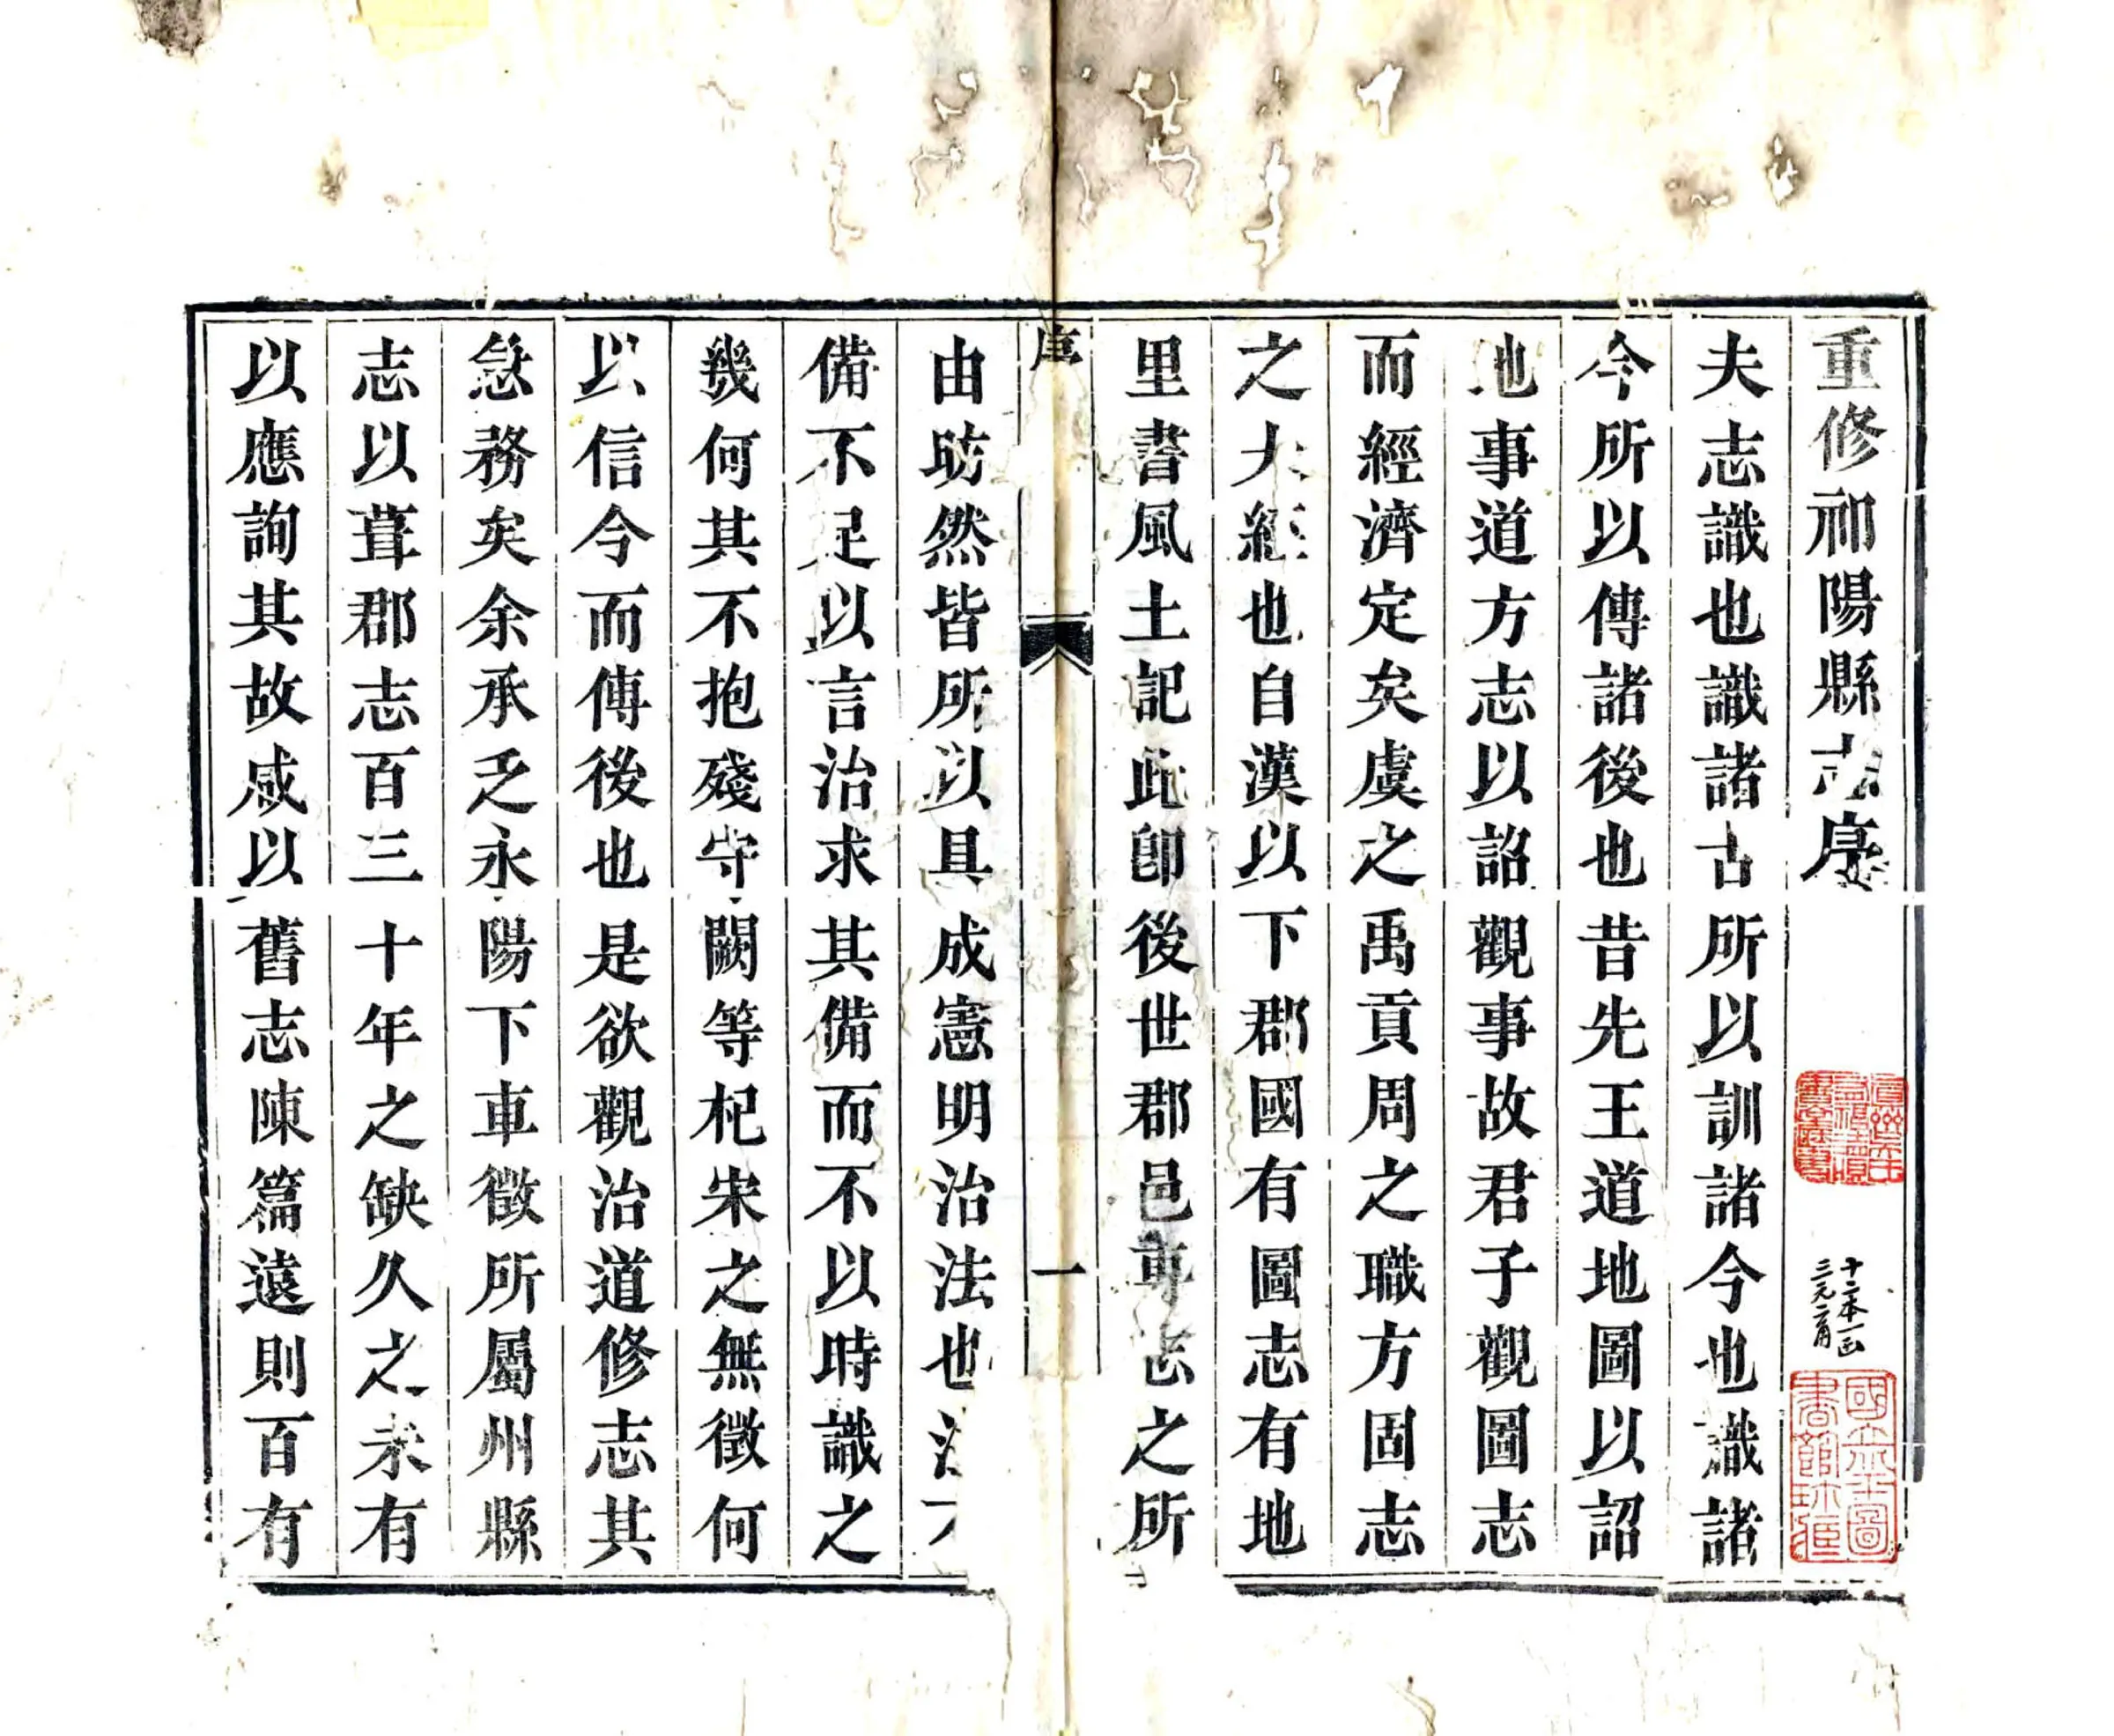 重修祁陽縣志序
十二本一函
三元二角
國立北平圖書館珍藏
夫志識也識諸古所以訓諸今也識諸
今所以傳諸後也昔先王道地圖以詔
地事道方志以詔觀事故君子觀圖志
而經濟定矣虞之禹貢周之職方固志
之大經也自漢以下郡國有圖志有地
里書風土記此卽後世郡邑專志之所
序 一
由昉然皆所以具成憲明治法也法
備不足以言治求其備而不以時識之
幾何其不抱殘守闕等杞宋之無徵何
以信今而傳後也是欲觀治道修志其
急務矣余承乏永陽下車徵所屬州縣
志以葺郡志百三十年之缺久之未有
以應詢其故咸以舊志陳篇遠則百有